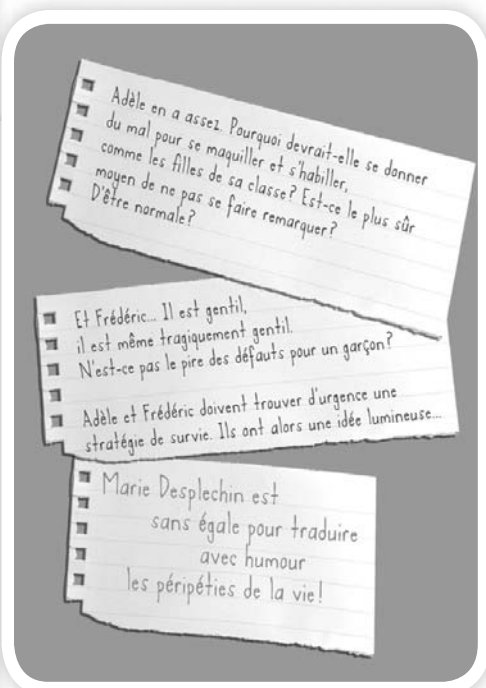 Adèle en a assez. Pourquoi devrait-elle se donner
du mal pour se maquiller et s'habiller,
comme les filles de sa classe? Est-ce le plus sûr
moyen de ne pas se faire remarquer?
D'être normale?
Et Frédéric... Il est gentil,
il est même tragiquement gentil.
N'est-ce pas le pire des défauts pour un garçon?
Adèle et Frédéric doivent trouver d'urgence une
stratégie de survie. Ils ont alors une idée lumineuse...
Marie Desplechin est
sans égale pour traduire
avec humour
les péripéties de la vie!